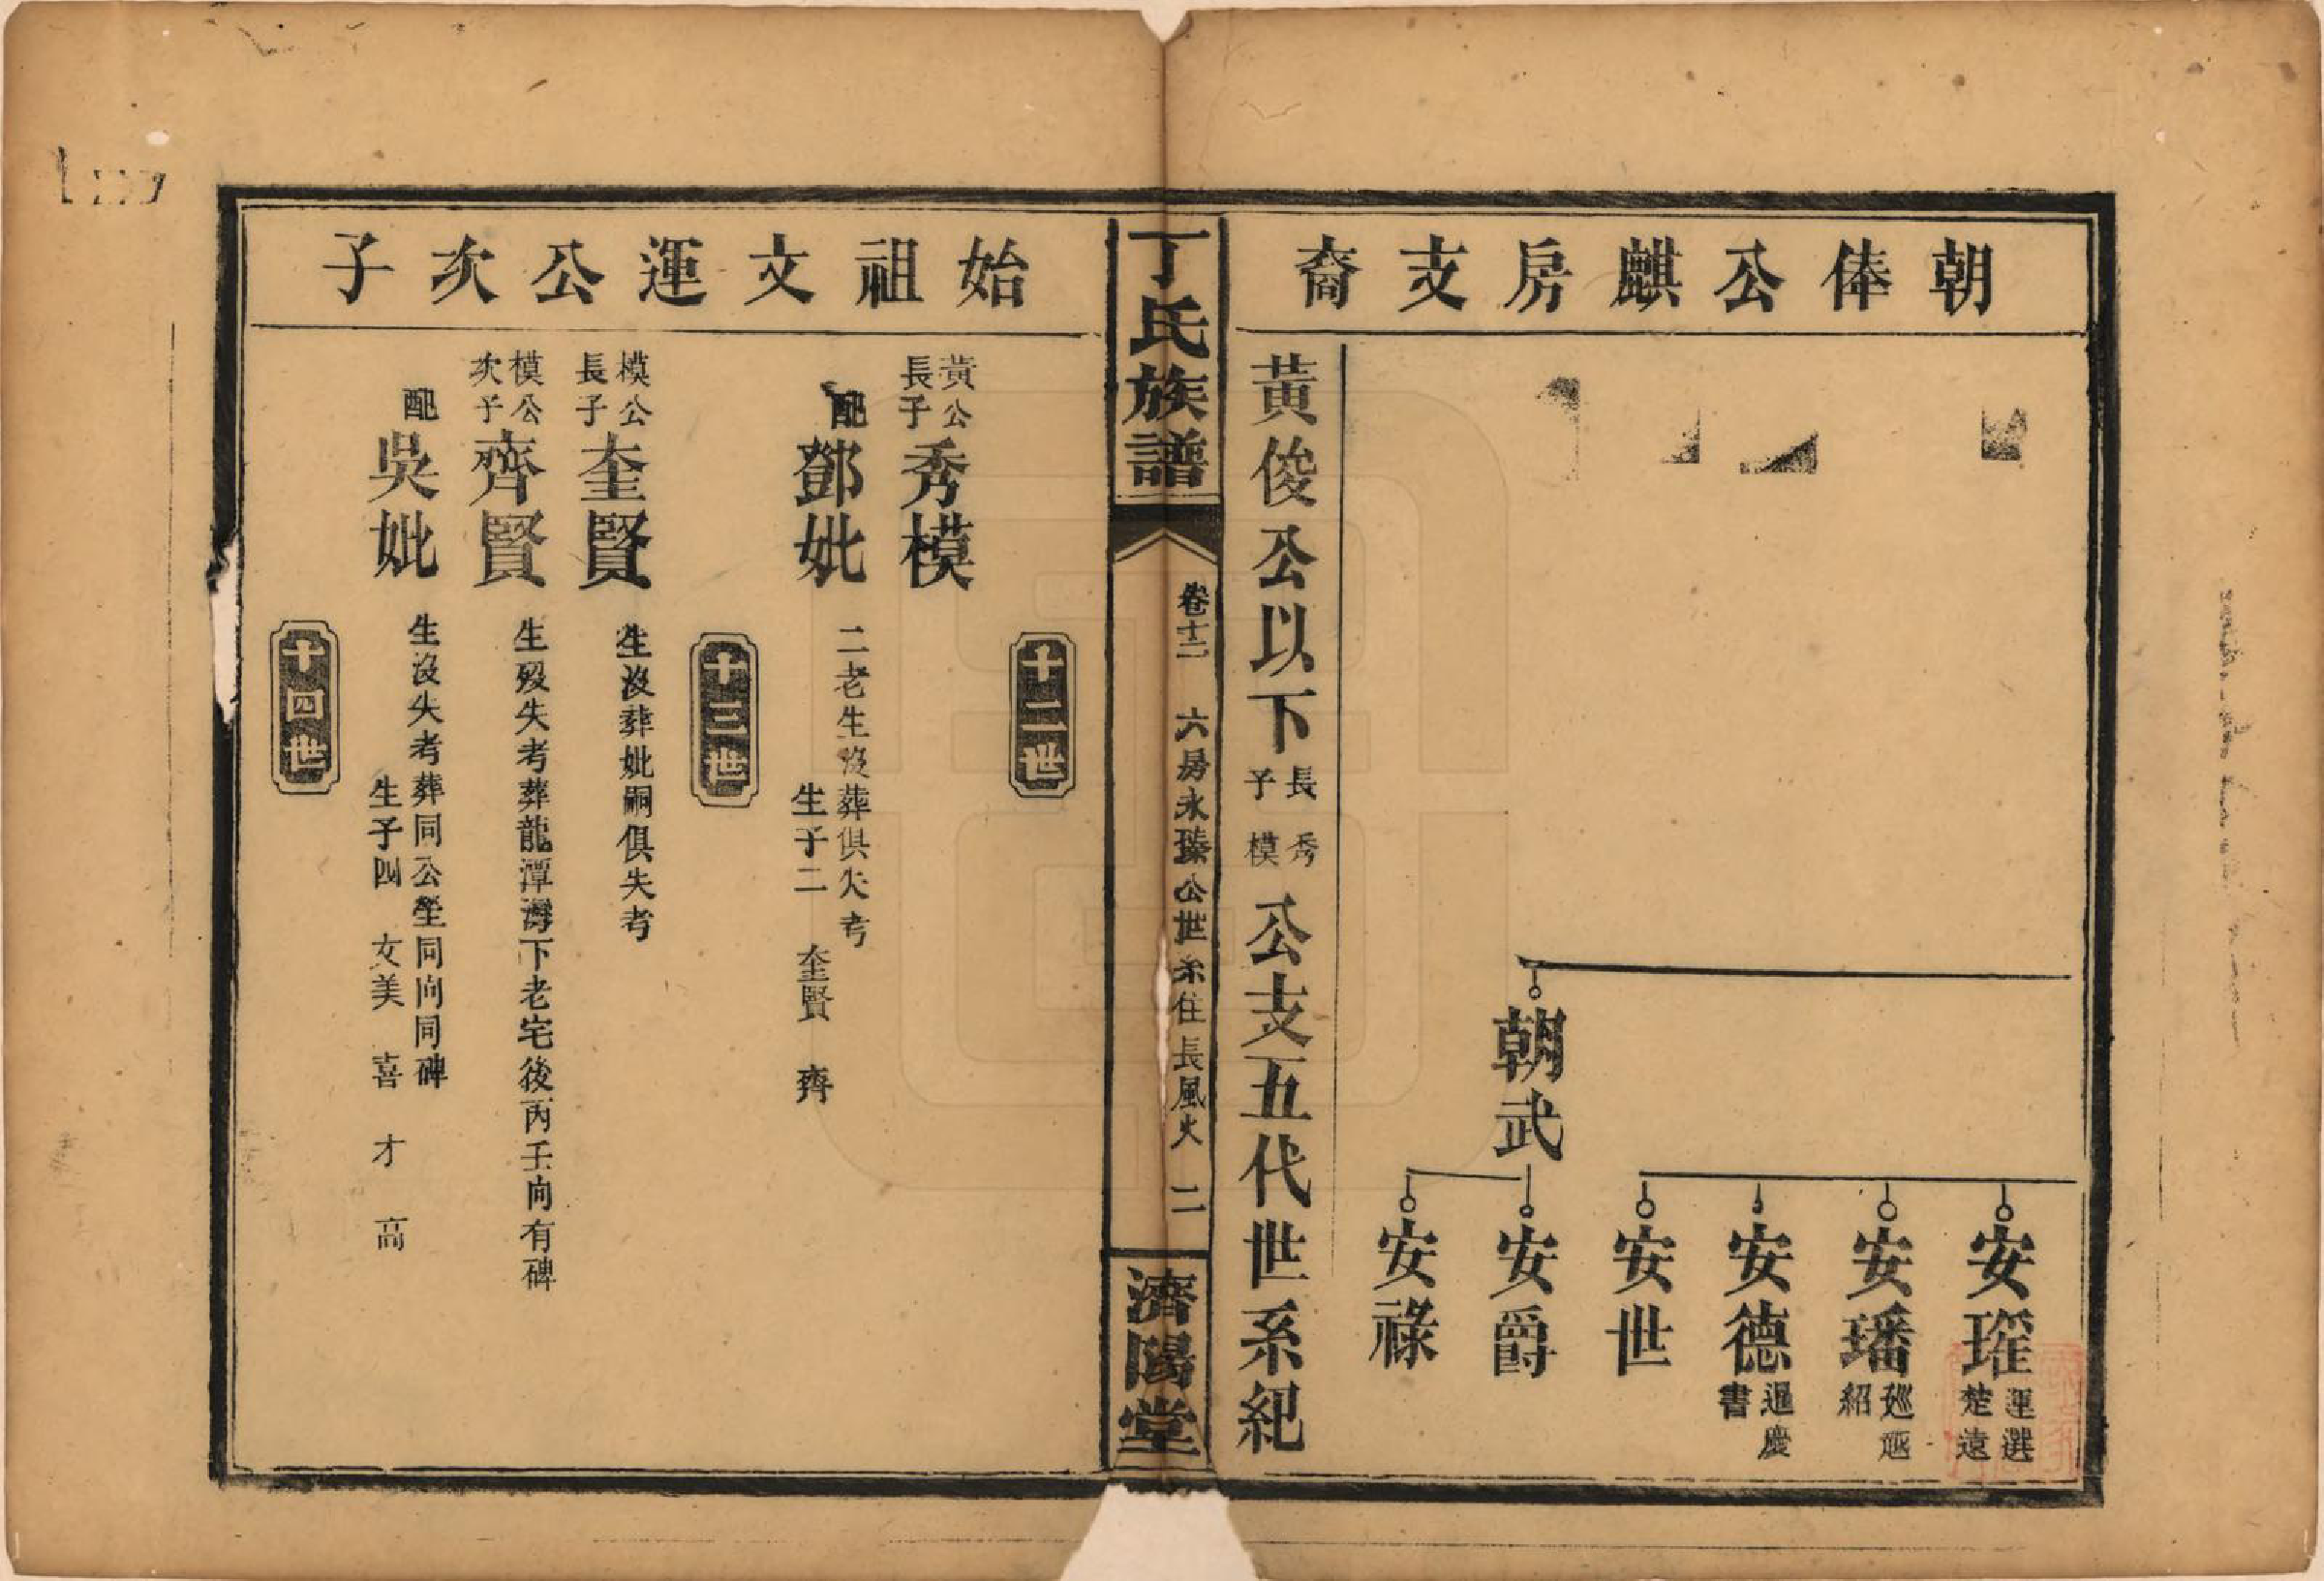 朝俸公麒房支裔
朝武
安瑆 運選 楚遠
安璠 廵廵 紹
安德 過慶 書
安世
安爵
安祿
黃俊公以下長子秀模公支五代世系紀
丁氏族譜
卷十二 六房永臻公世系住長風火 二
濟陽堂
始祖文運公次子
十二世
黃公長子秀模
配鄧妣 二老生沒葬俱失考
生子二 奎賢 齊
十三世
模公長子奎賢 生沒葬妣嗣俱失考
模公次子齊賢 生歿失考葬龍潭灣下老宅後丙壬向有碑
配吳妣 生沒失考葬同公塋同向同碑
生子四 文美 喜 才 高
十四世